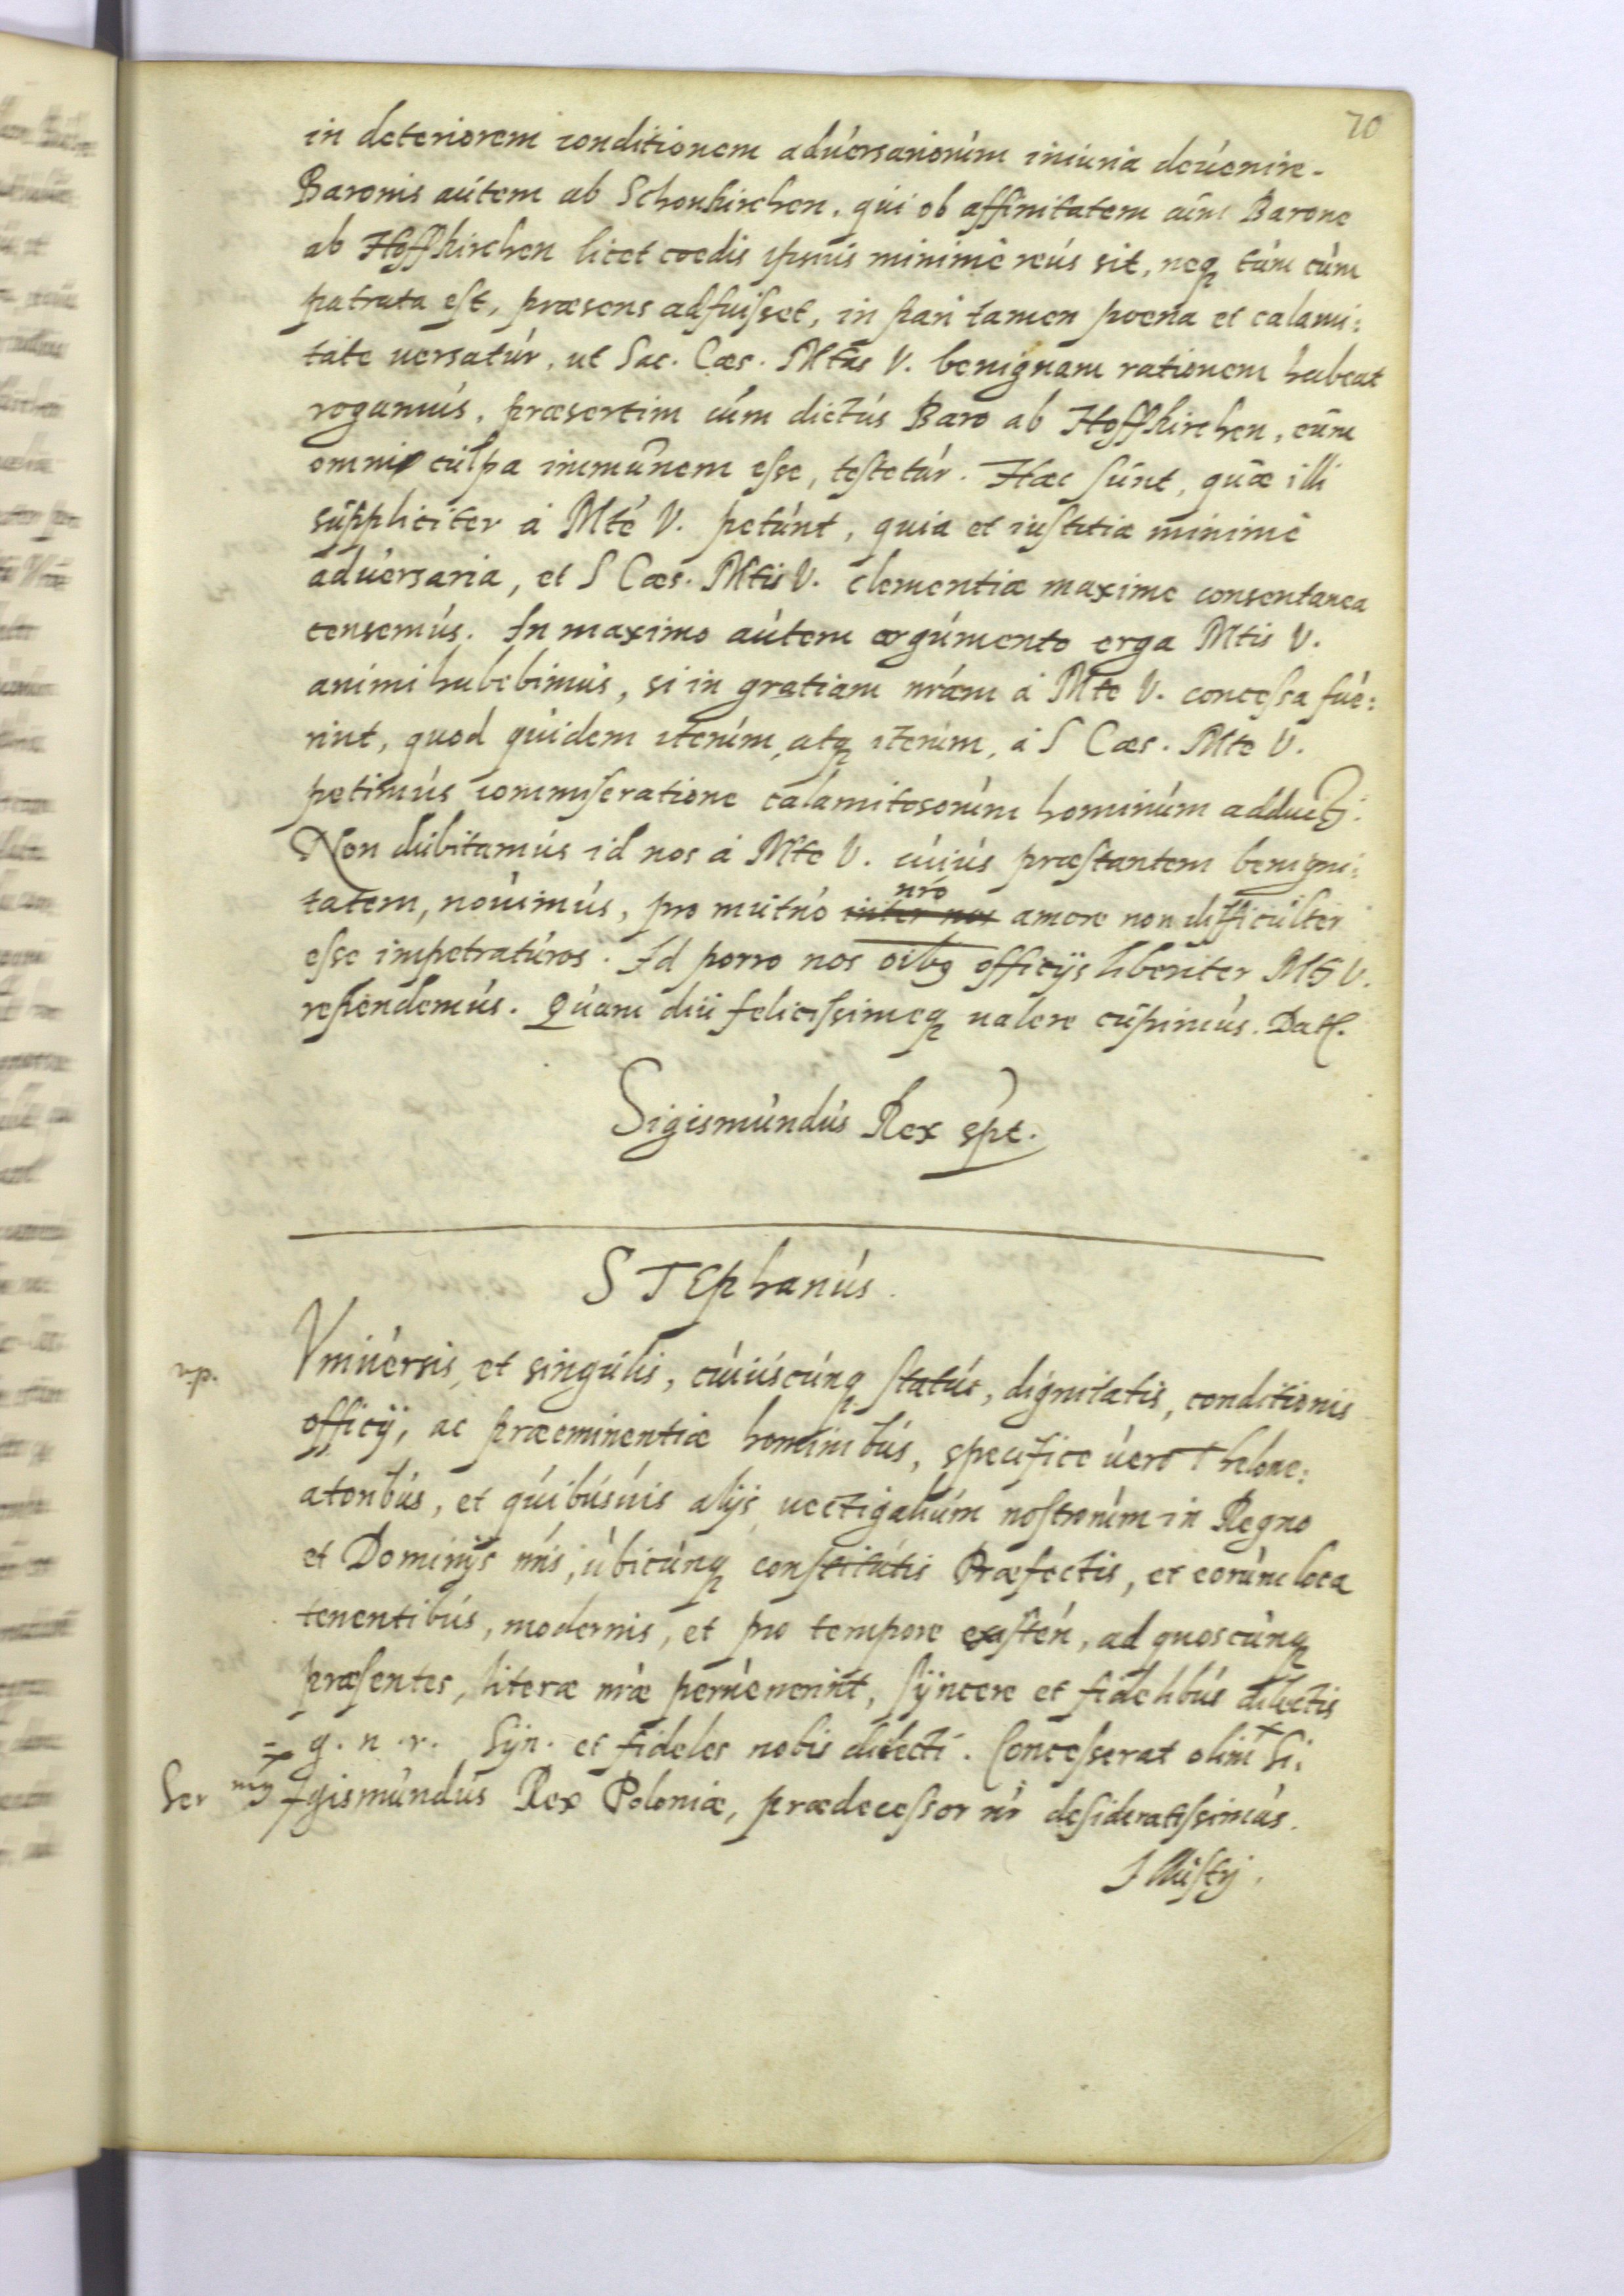 70
in deteriorem conditionem adúersariorúm iniuria deúenire.
Baronis aútem ab Schonkirchen, qúi ob affinitatem cúm Barone
ab Hoffkirchen licet cædis ipsius minimè reús sit, neq túm cúm
patrata est, præsens adfuisset, in pari tamen pœna et calami:
tate uersatúr, ut Sac. Cæs. Mtas V. benignam rationem habeat
rogamús, præsertim cúm dictús Baro ab Hoffkirchen, eúm
omni cúlpa immúnem esse, testetúr. Hæc súnt, qúæ illi
súppliciter à Mte V. petúnt, quia et iustitiæ minimè
adúersaria, et S Cæs. Mtis V. clementiæ maxime consentanea
censemús. In maximo aútem argúmento erga Mtis V.
animi habebimús, si in gratiam nrám à Mte V. concessa fúe:
rint, quod qúidem iterúm, atq iterúm, à S Cæs. Mte V.
petimús commiseratione calamitosorúm hominúm adducti.
Non dúbitamús id nos à Mte V. cúiús præstantem benigni:
tatem, nouimús, pro mútúo inter nos nro amore non difficúlter
esse impetratúros. Id porro nos oibg officijs libenter Mti V.
rependemús. Qúam diú felicissimeq ualere cúpimús. Dat.
Sigismúndús Rex spt.
STEphanús.
v.p.
Vniúersis, et singúlis, cúiúscúnq statús, dignitatis, conditionis
officij, ac præeminentiæ hominibús, specifice úero Thelone:
atoribús, et qúibúsúis alijs, uectigaliúm nostrorúm in Regno
et Dominijs nris, úbicúnq constitútis Præfectis, et eorúm loca
tenentibús, modernis, et pro tempore existén, ad quoscúnq
præsentes, literæ nræ peruenerint, sÿncere et fidelibús dilectis
g. n. r. Sÿn. et fideles nobis dilecti. Concesserat olim Si:
Ser mg gismúndús Rex Poloniæ, prædecessor nr desideratissimús.
Illústj.